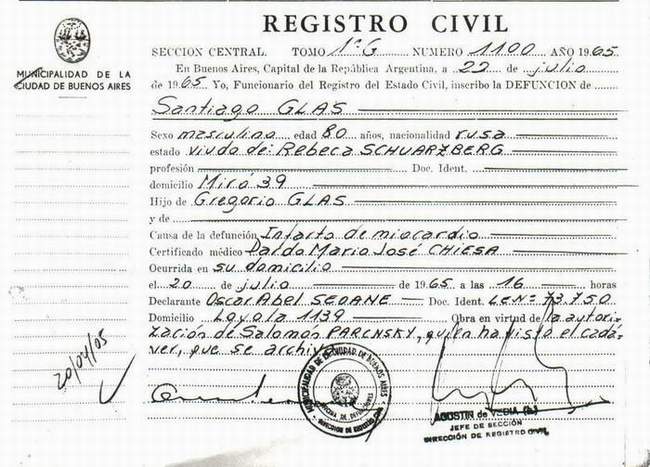 REGISTRO CIVIL
SECCION CENTRAL. TOMO 1º G NUMERO 1100 AÑO 1965
MUNICIPALIDAD DE LA
CIUDAD DE BUENOS AIRES
En Buenos Aires, Capital de la República Argentina, a 22 de julio
de 1965 Yo, Funcionario del Registro del Estado Civil, inscribo la DEFUNCION de
Santiago GLAS
Sexo masculino edad 80 años, nacionalidad rusa
estado viudo de: Rebeca SCHUARZBERG
profesión Doc. Ident.
domicilio Miró 39
Hijo de Gregorio GLAS
y de
Causa de la defunción Infarto de miocardio
Certificado médico Pardo Mario José CHIESA
Ocurrida en su domicilio
el 20 de julio de 1965 a las 16 horas
Declarante Oscar Abel SEOANE Doc. Ident. LE Nº 73.750
Domicilio Loyola 1139 Obra en virtud de la autori-
zación de Salomón PARCNSKY, quien ha visto el cadá-
ver, que se archiva
20/04/05
MUNICIPALIDAD DE LA CIUDAD DE BUENOS AIRES
DIRECCION DE REGISTRO CIVIL
AGUSTIN de VEDIA (h.)
JEFE DE SECCIÓN
DIRECCIÓN DE REGISTRO CIVIL